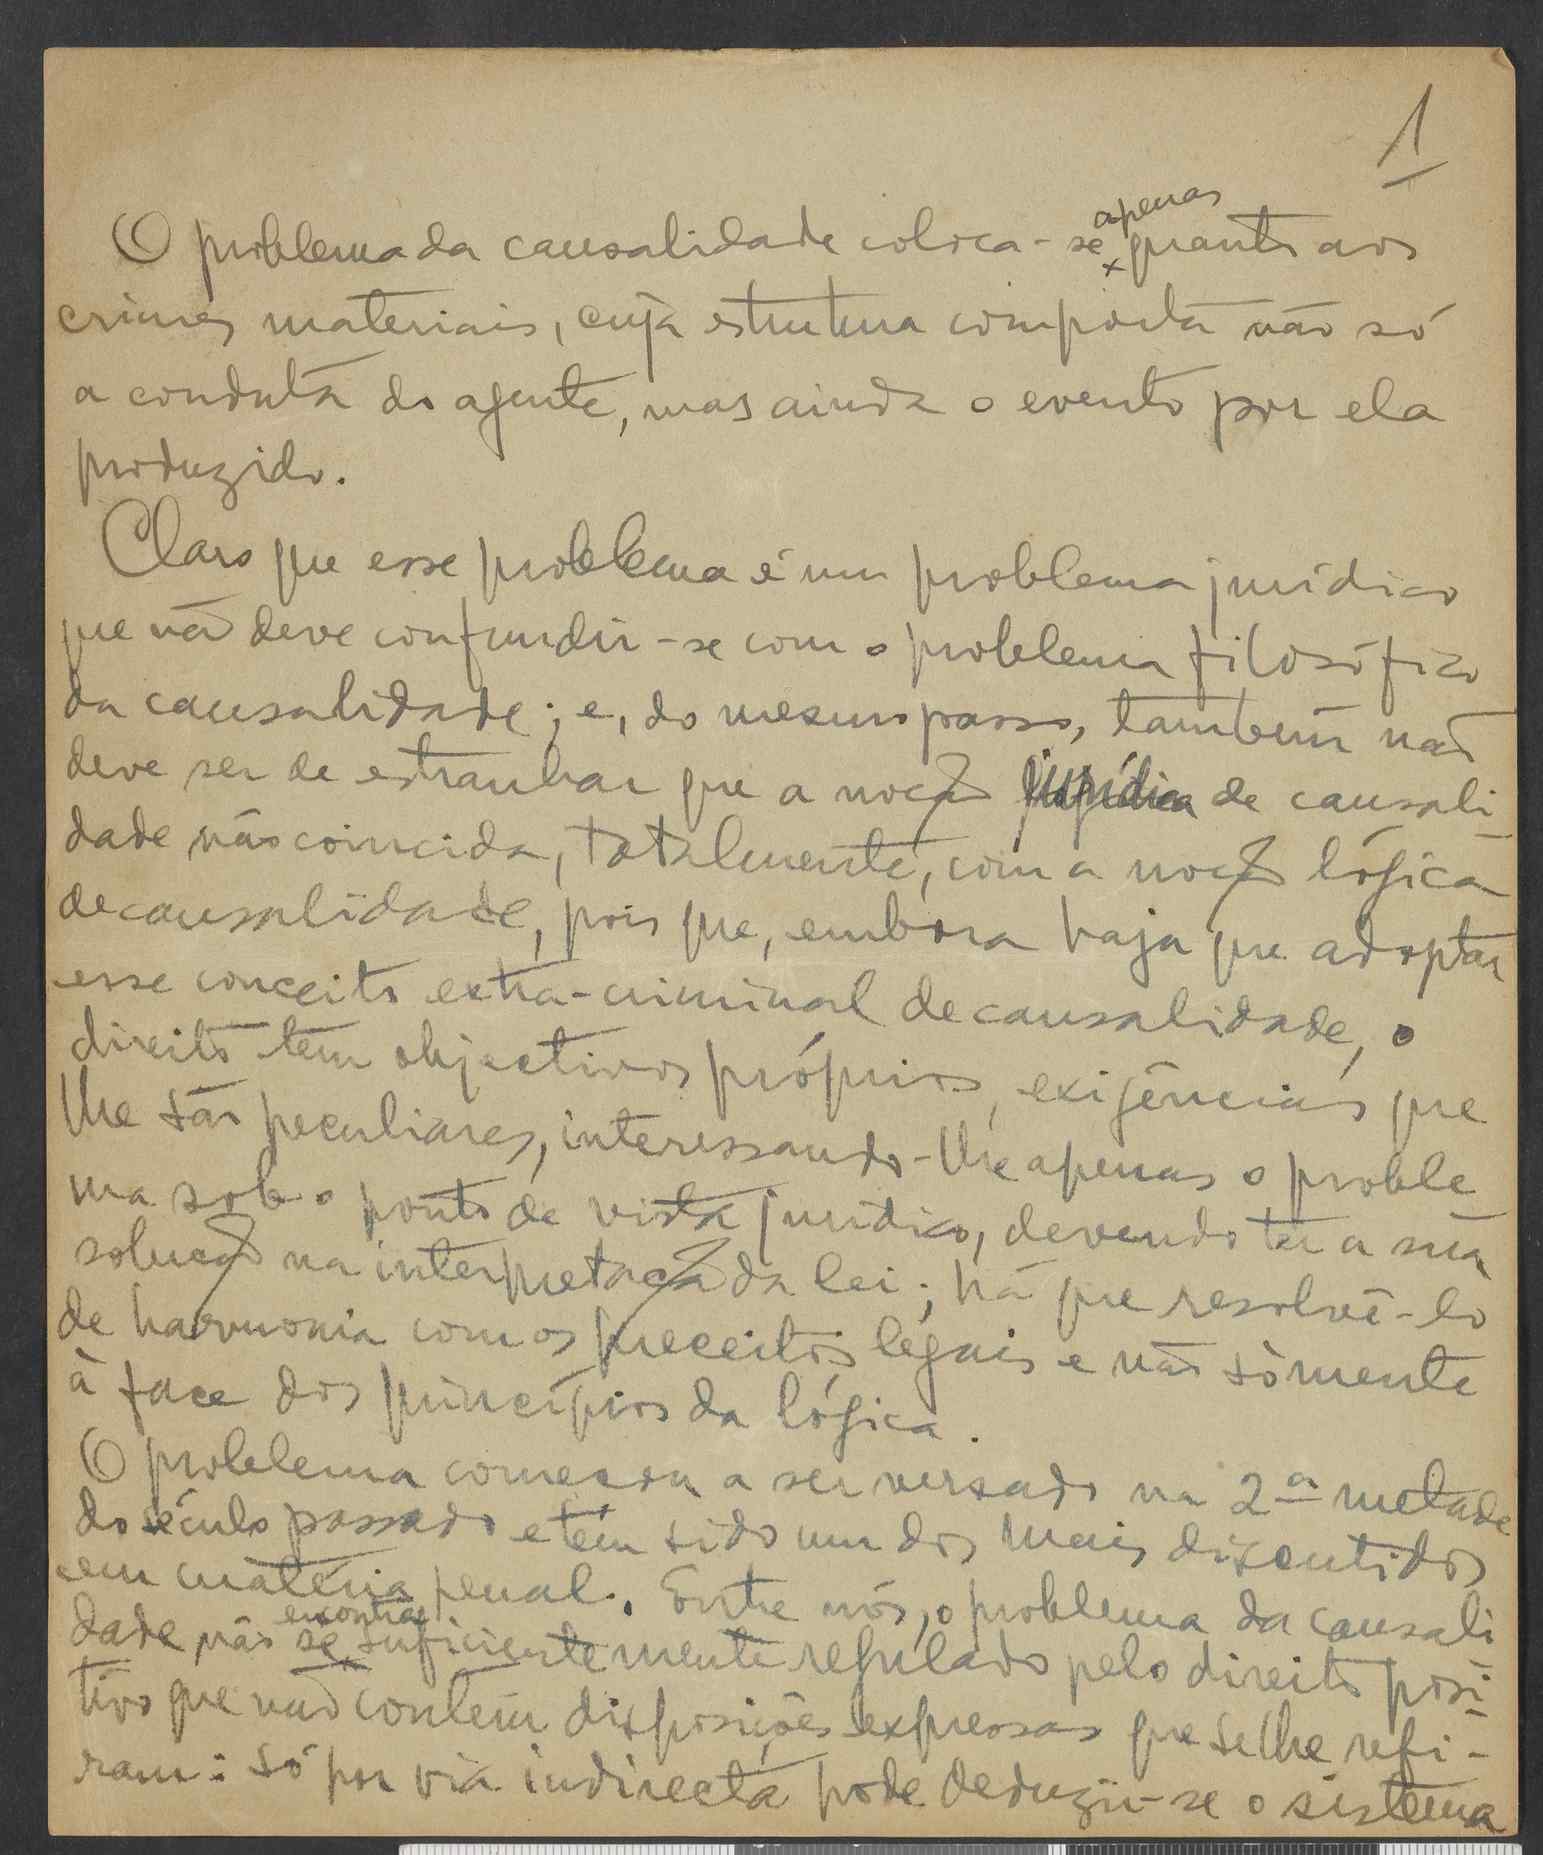 1
apenas
O problema da causalidade coloca-se quanto aos
crimes materiais, cuja estrutura comporta não só
a conduta do agente, mas ainda o evento por ela
produzido.
Claro que esse problema é um problema jurídico
que não deve confundir-se com o problema filosófico
da causalidade; e, do mesmo passo, também não
deve ser de estranhar que a noção jurídica de causali-
dade não coincida, totalmente, com a noção lógica
de causalidade, pois que, embora haja que adoptar
esse conceito extra-criminal de causalidade, o
direito tem objectivos próprios, exigências que
lhe são peculiares, interessando-lhe apenas o proble
ma sob o ponto de vista jurídico, devendo ter a sua
solução na interpretação da lei; há que resolvê-lo
de harmonia com os preceitos legais e não sòmente
à face dos princípios da lógica.
O problema começou a ser versado na 2ª metade
do século passado e tem sido um dos mais discutidos
em matéria penal. Entre nós, o problema da causali
encontra
dade não se suficientemente regulado pelo direito posi-
tivo que não contém disposições expressas que se lhe refi-
ram: só por via indirecta pode deduzir-se o sistema